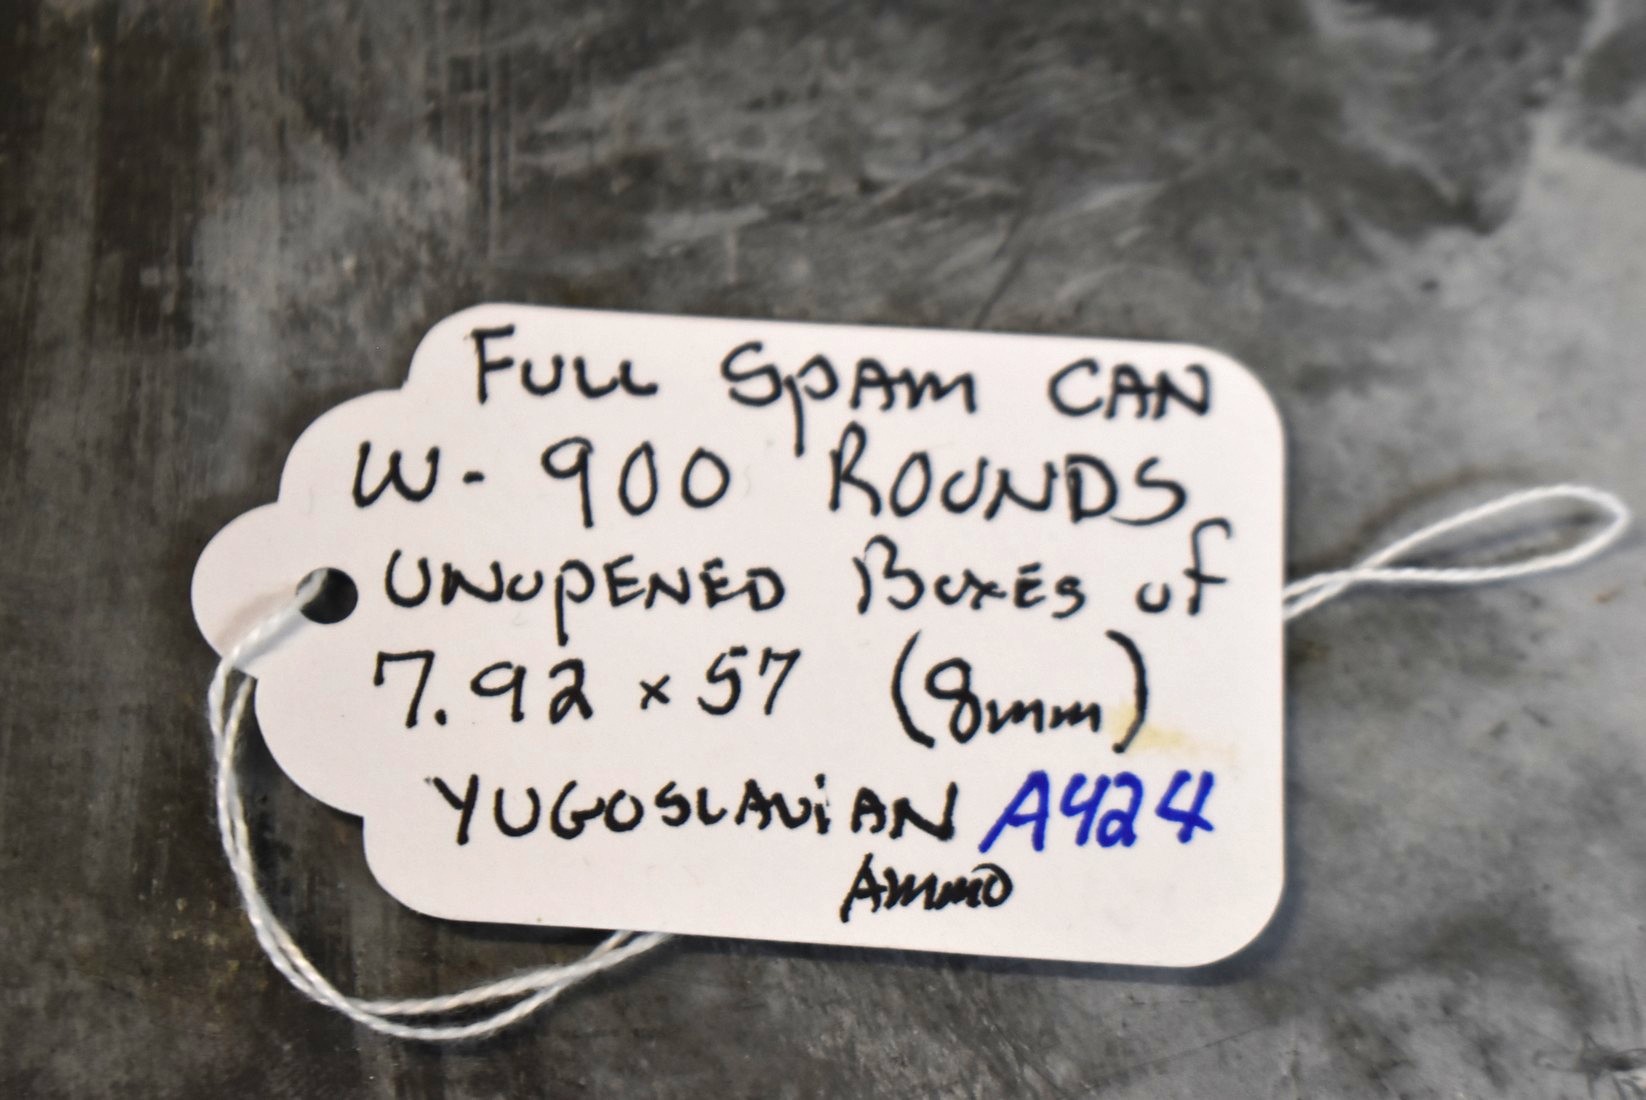 FULL SPAM CAN
W- 900 ROUNDS
UNOPENED BOXES of
7.92 x 57 (8mm)
YUGOSLAViAN A424
AMMO